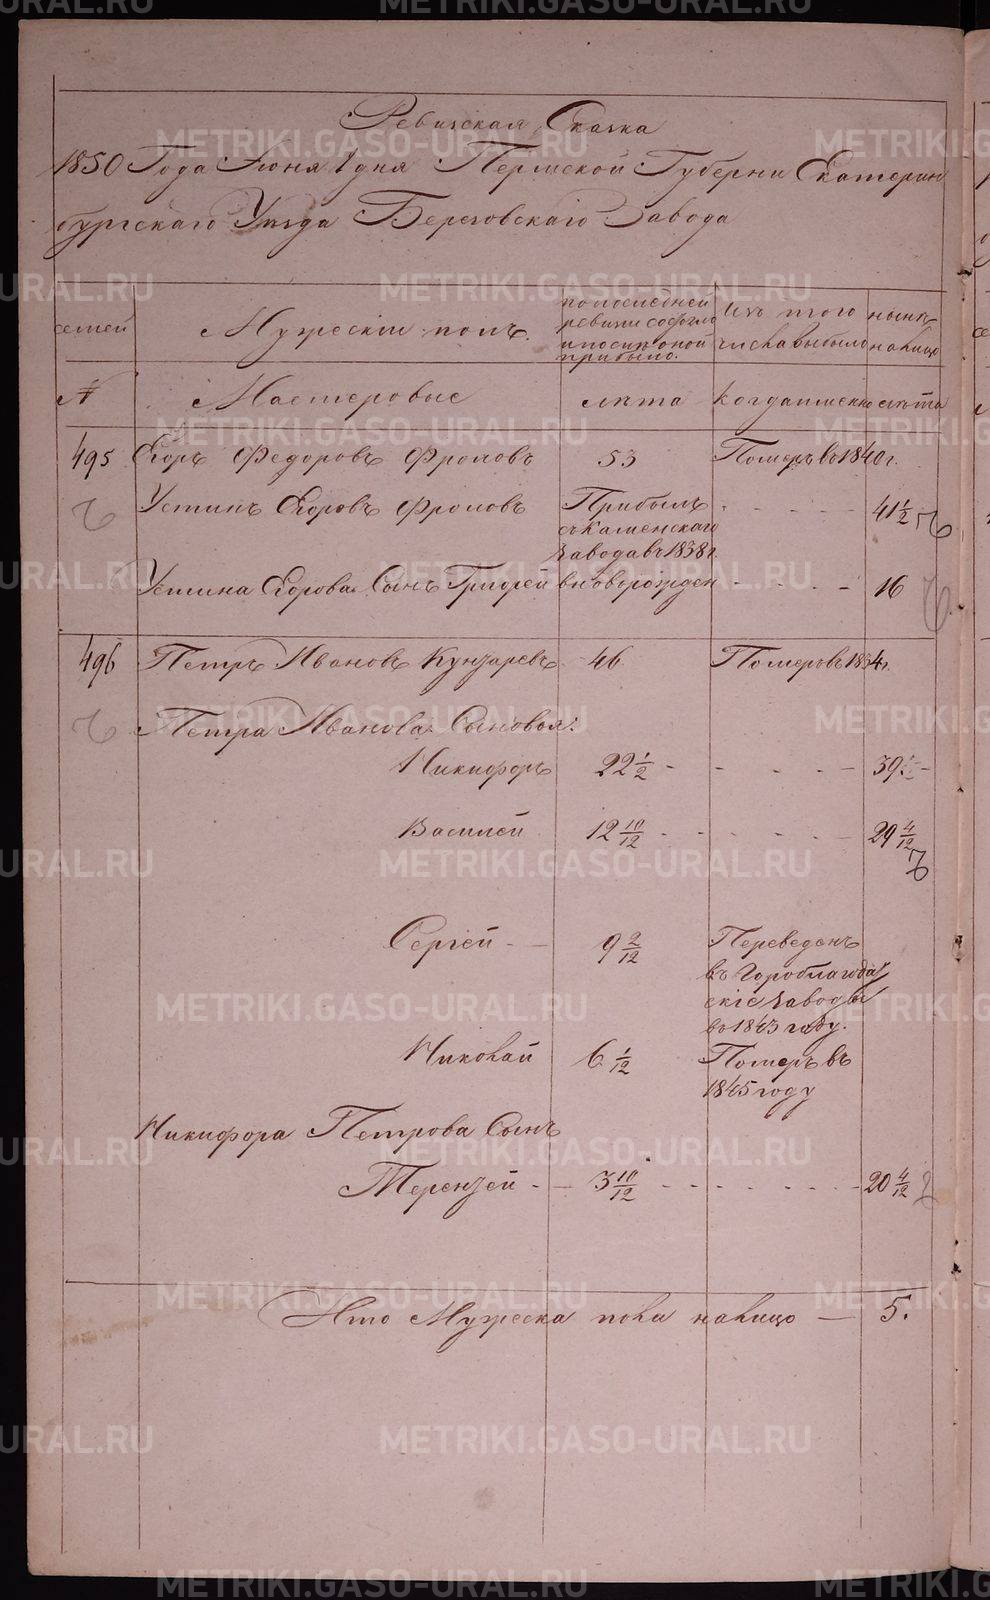 Ревизская Сказка
1850 Года Июня 1 дня Пермской Губернии Екатерин
бургскаго Уезда Березовскаго Завода
семей
Мужескій полъ.
по последней
ревизіи состояло
и после оной
прибыло.
Изъ того
числа выбыло
ныне
на лицо
№
Мастеровые
лета
когда именно
лета
495 Егоръ Федоровъ Фроловъ 53 Померъ въ 1840 г.
Устинъ Егоровъ Фроловъ Прибылъ 41 1/2
съ Каменскаго
завода въ 1838 г.
Устина Егорова Сынъ Григорей вновьрожден 16
496 Петръ Ивановъ Кунгаревъ 46 Померъ въ 1834 г.
Петра Иванова Сыновья:
Никифоръ 22 1/2 39
Василей 12 10/12 29 4/12
Сергей 9 2/12 Переведенъ
въ Гороблагода
скіе заводы
въ 1843 году.
Николай 6 1/12 Померъ въ
1845 году
Никифора Петрова Сынъ
Терентей 3 10/12 20 4/12
Итого Мужеска пола на лицо — 5.
METRIKI.GASO-URAL.RU